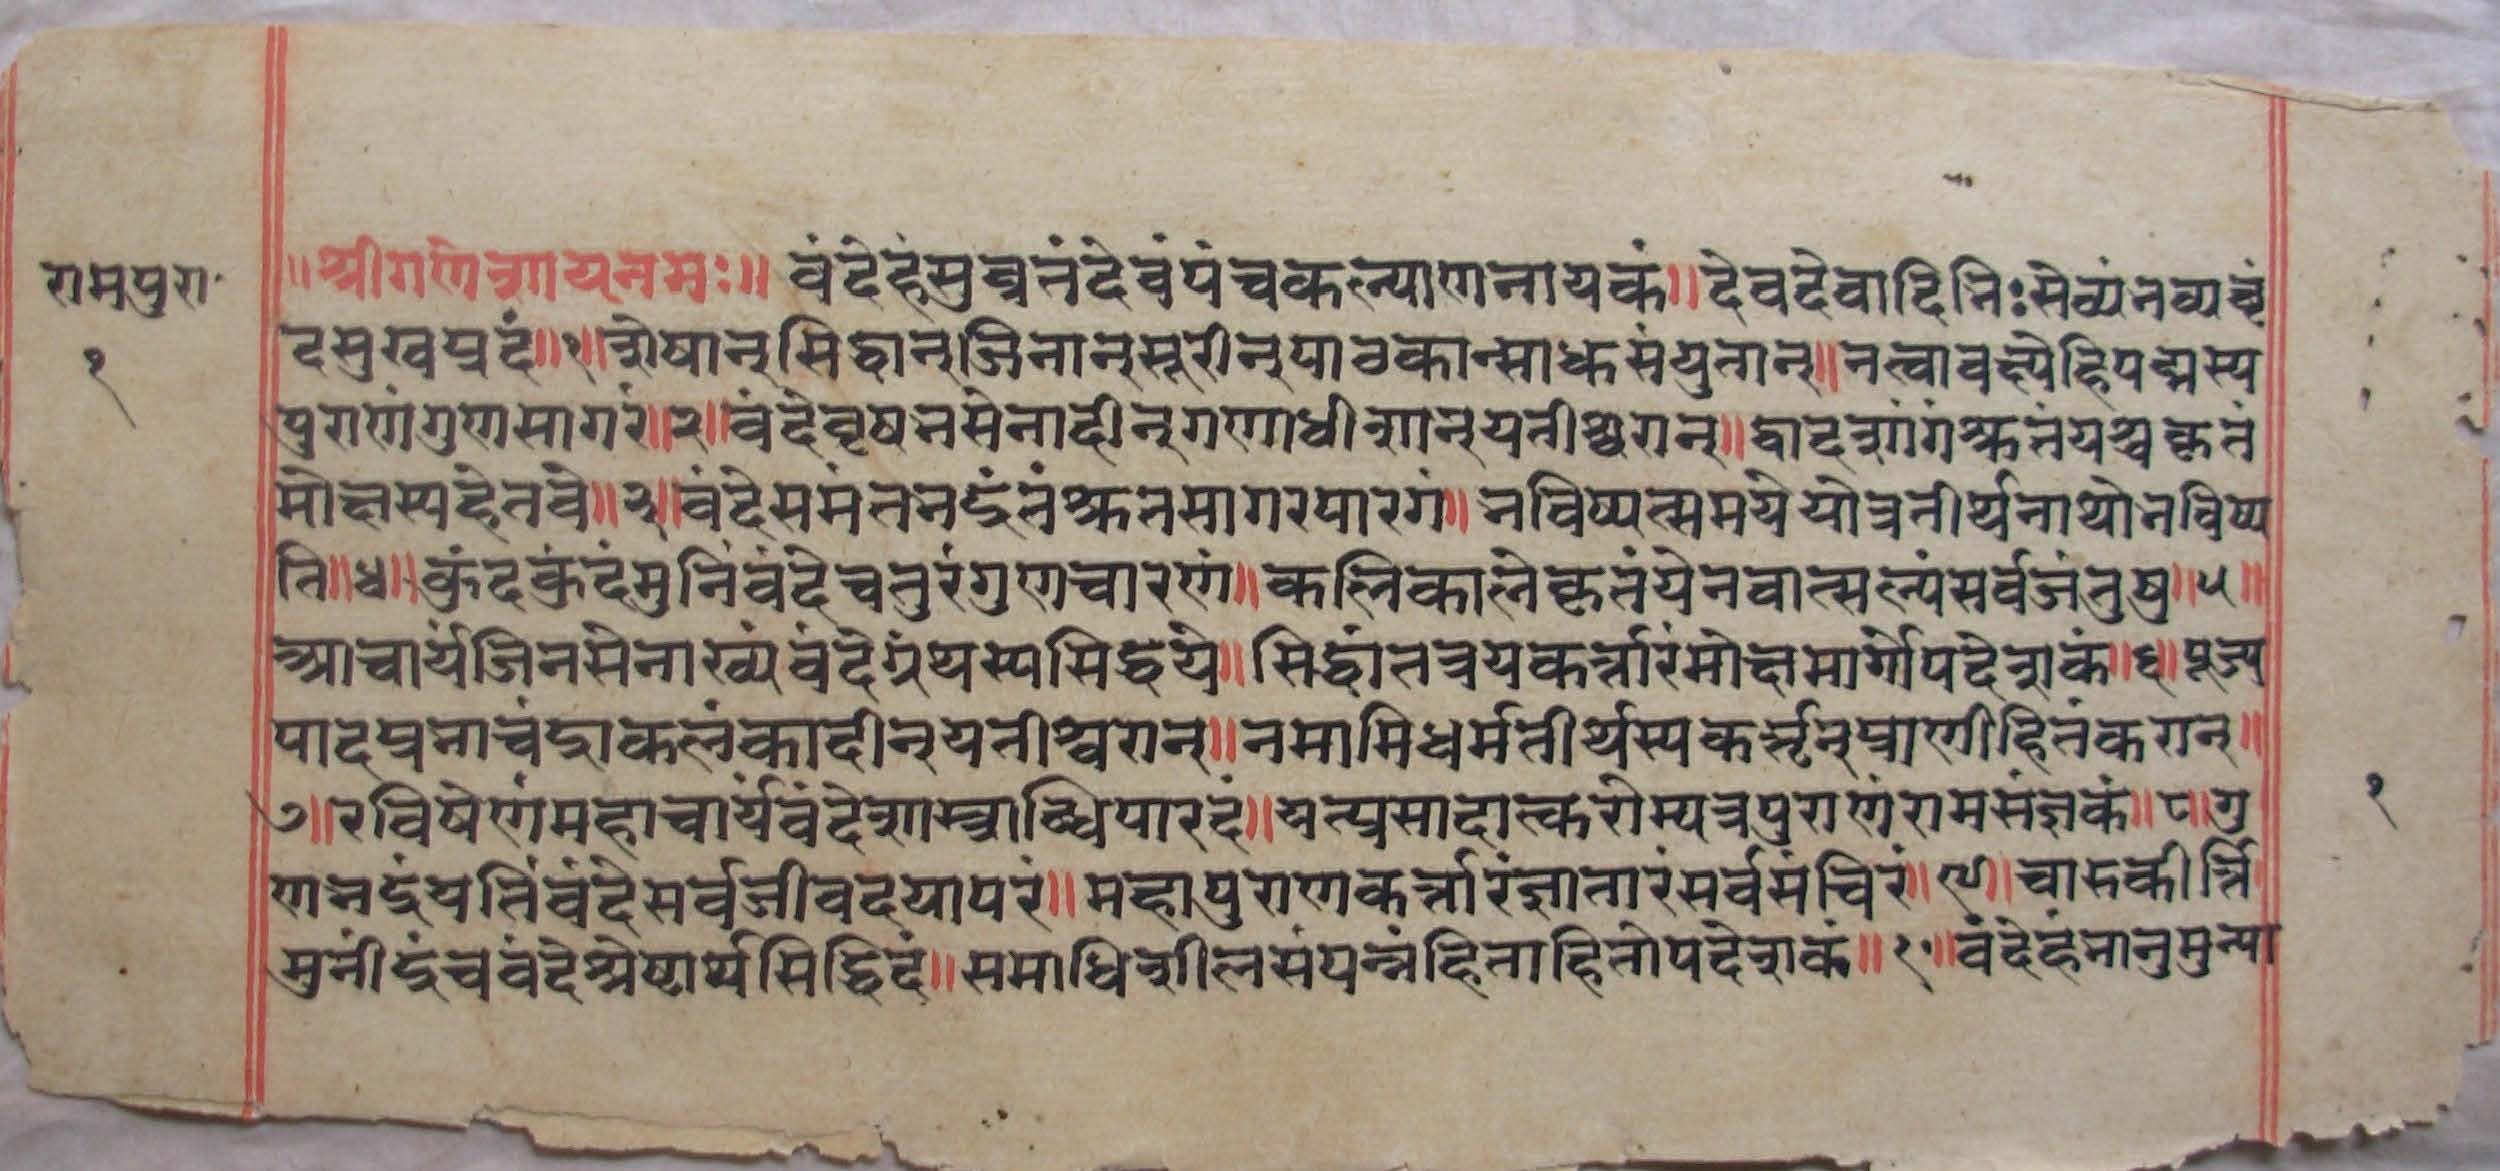 रामपुरा
१
॥श्रीगणेशायनमः॥ वंदेहंसुव्रतंदेवंपंचकल्याणनायकं॥देवदेवादिभिःसेव्यंभव्यवृं
दसुखप्रदं॥१॥शेषान्सिद्धान्जिनान्सूरीन्पाठकान्साधुसंयुतान्॥नत्वावक्ष्येहिपद्मस्य
पुराणंगुणसागरं॥२॥वंदेवृषभसेनादीन्गणाधीशान्यतीश्वरान्॥द्वादशांगंश्रुतंयैश्चकृतं
मोक्षस्यहेतवे॥३॥वंदेसमंतभद्रंतंश्रुतसागरपारगं॥भविष्यत्समयेयोत्रतीर्थनाथोभविष्य
ति॥४॥कुंदकुंदंमुनिंवंदेचतुरंगुणचारणं॥कलिकालेकृतंयेनवात्सल्यंसर्वजंतुषु॥५॥
आचार्यजिनसेनाख्यंवंदेग्रंथस्यसिद्धये॥सिद्धांतत्रयकर्त्तारंमोक्षमार्गोपदेशकं॥६॥पूज्य
पादप्रभाचंद्राकलंकादीन्यतीश्वरान्॥नमामिधर्मतीर्थस्यकर्तॄन्प्राणीहितंकरान्॥
७॥रविषेणंमहाचार्यंवंदेशास्त्राब्धिपारदं॥यत्प्रसादात्करोम्यत्रपुराणंरामसंज्ञकं॥८॥गु
णभद्रंयतिंवंदेसर्वजीवदयापरं॥महापुराणकर्त्तारंज्ञातारंसर्वसंचिरं॥९॥चारुकीर्त्ति
मुनींद्रंचवंदेश्रेष्ठार्थसिद्धिदं॥समाधिशीलसंपन्नंहिताहितोपदेशकं॥१०॥वंदेहंभानुमुन्या
१